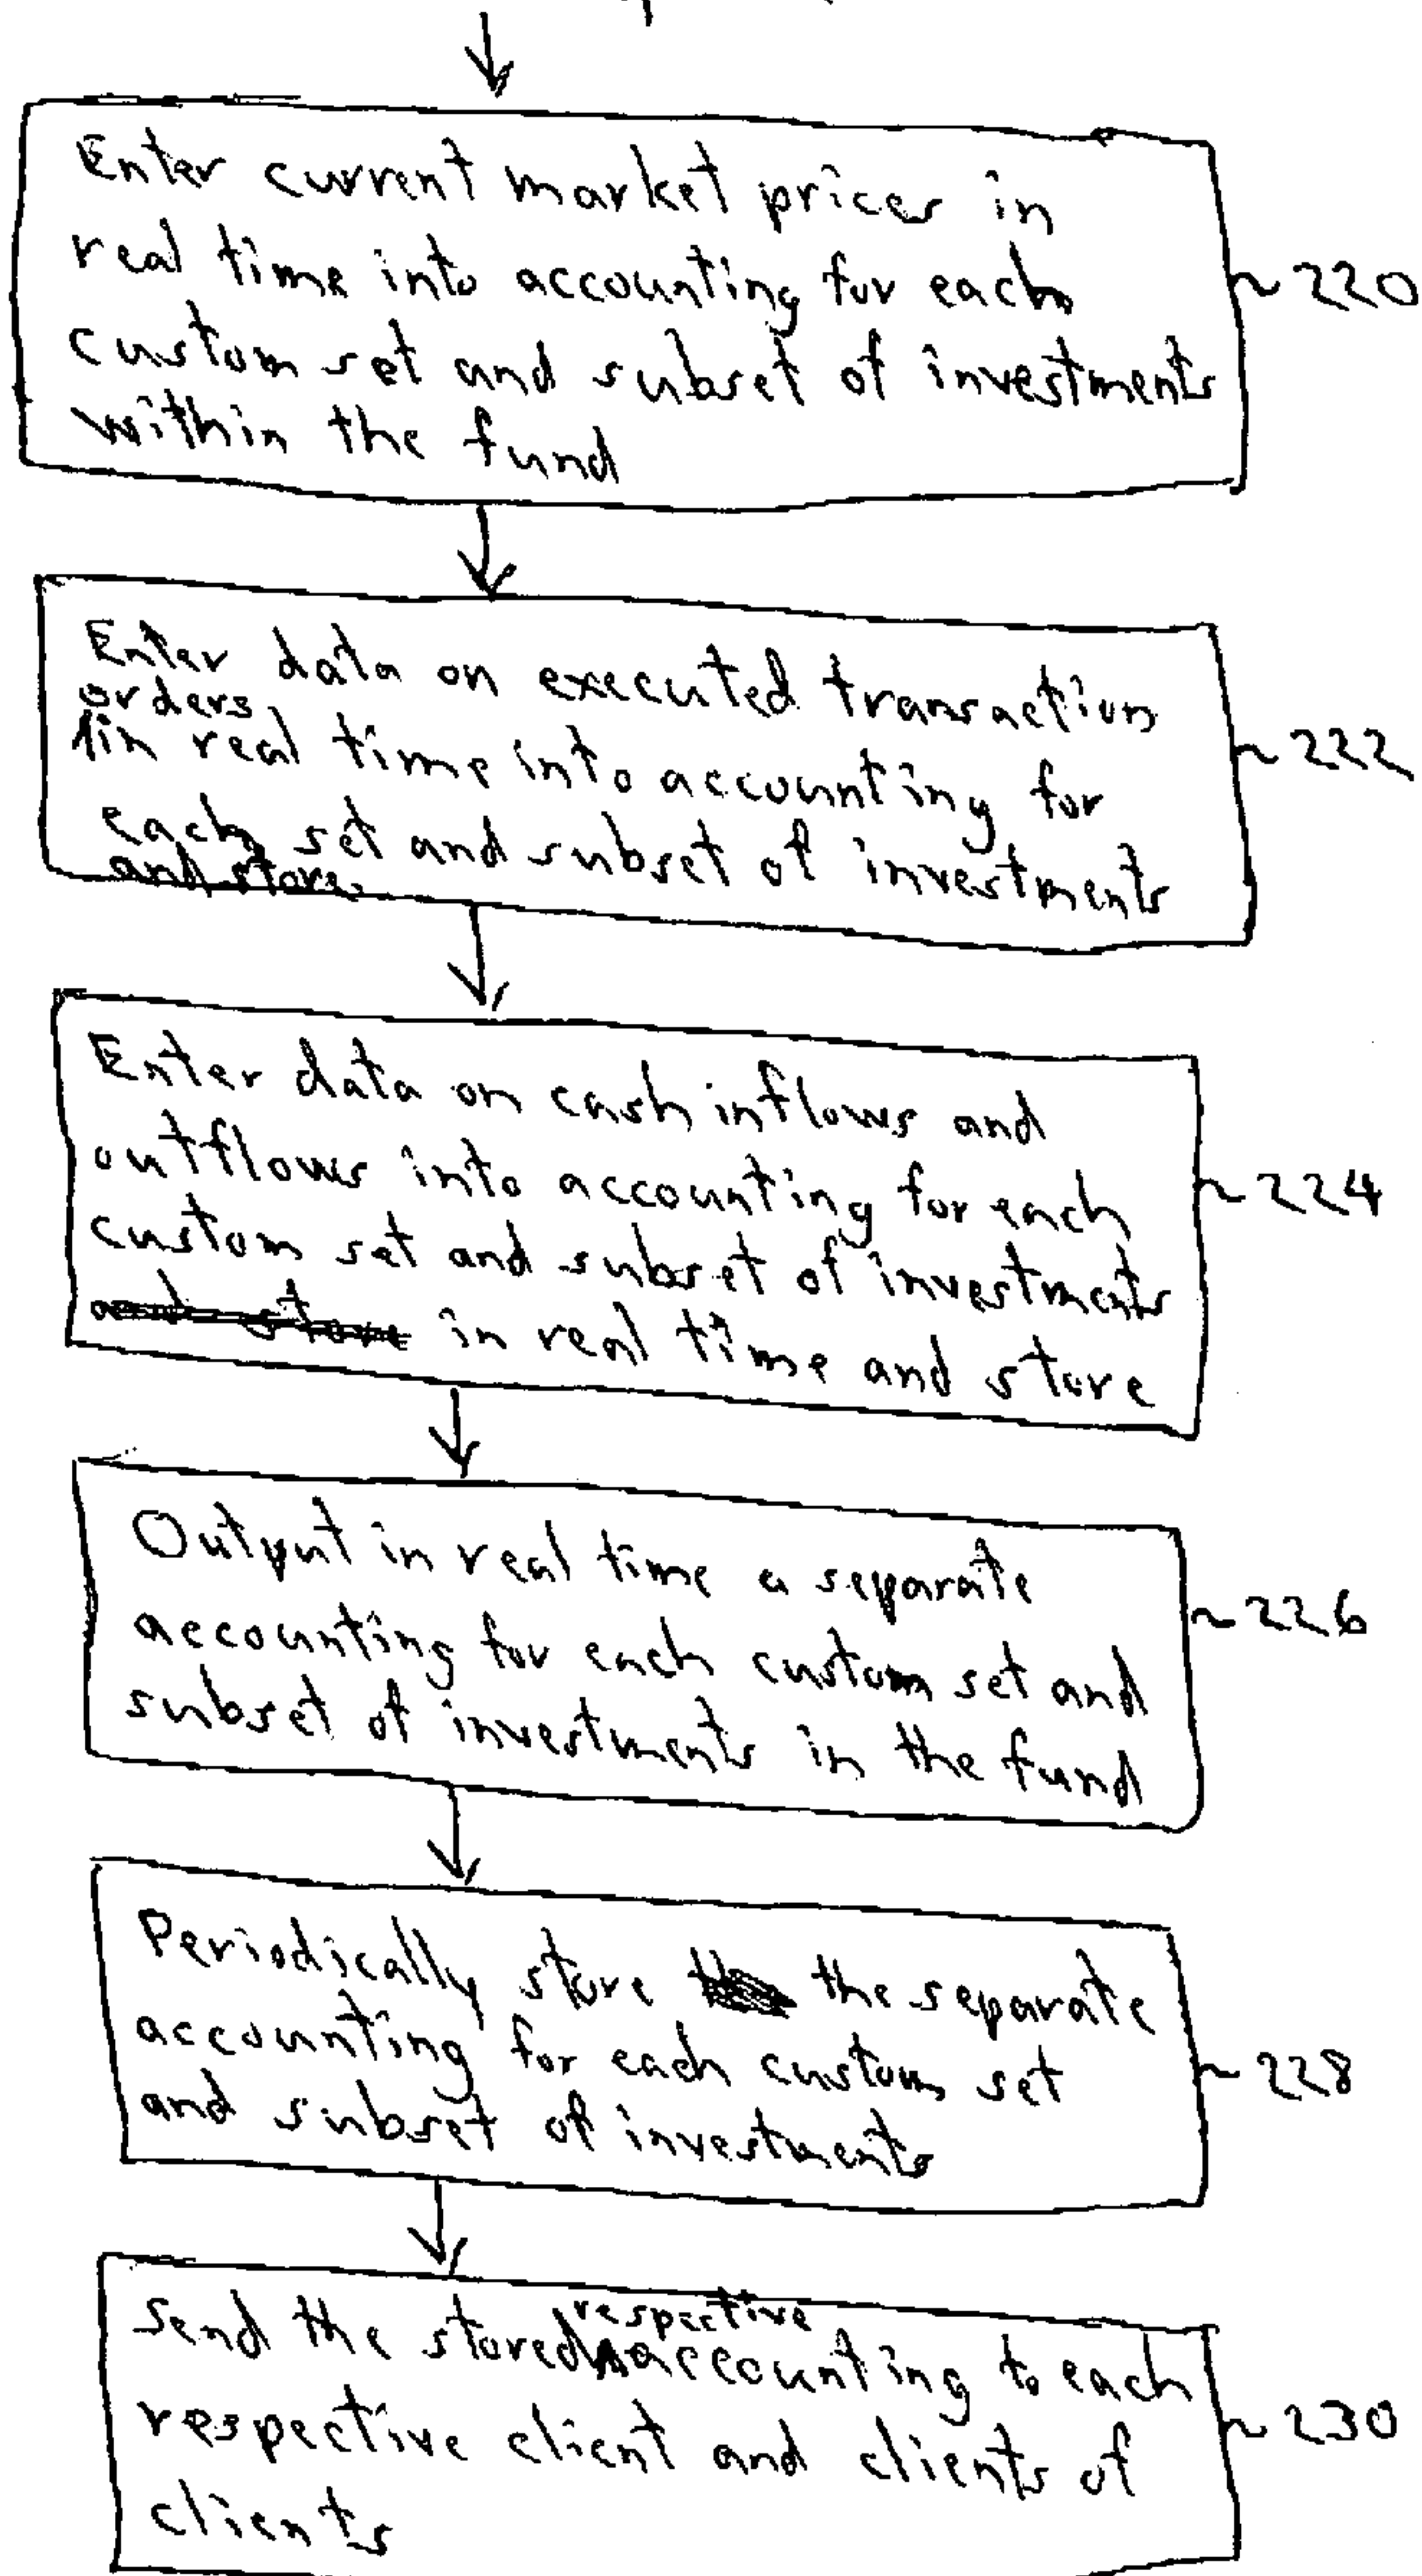 Enter current market prices in
real time into accounting for each
custom set and subset of investments
within the fund
~220
Enter data on executed transaction
orders
in real time into accounting for
each set and subset of investments
and store.
~222
Enter data on cash inflows and
outflows into accounting for each
custom set and subset of investments
and store in real time and store
~224
Output in real time a separate
accounting for each custom set and
subset of investments in the fund
~226
Periodically store the separate
accounting for each custom set
and subset of investments
~228
respective
Send the stored accounting to each
respective client and clients of
clients
~230